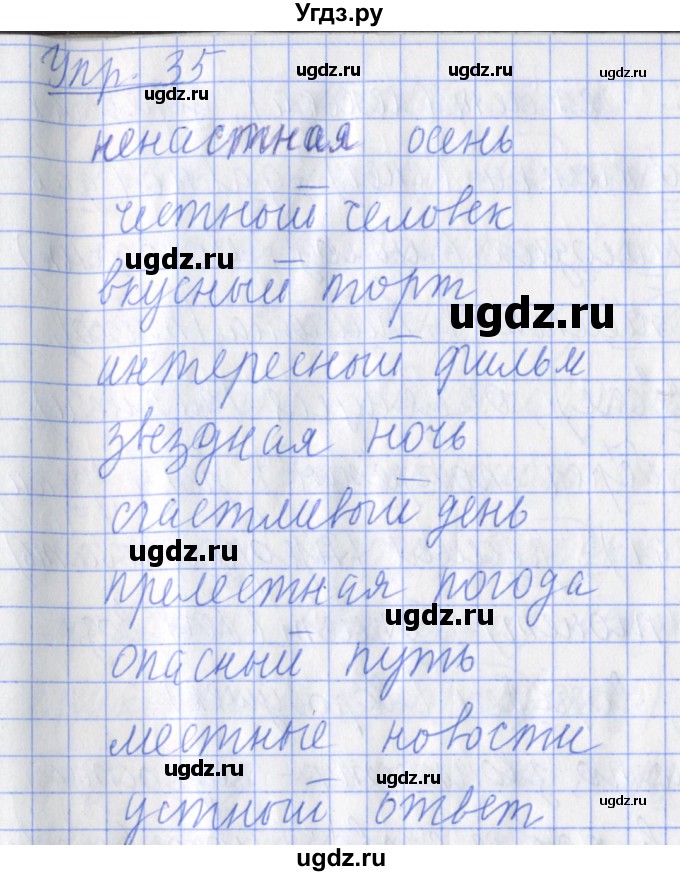 Угдз.ру
Упр. 35
ugdz.ru ugdz.ru ugdz.ru
ugdz.ru
ненастная осень
честный человек
ugdz.ru
вкусный торт
ugdz.ru
интересный фильм
звездная ночь
счастливый день
ugdz.ru
прелестная погода
ugdz.ru
опасный путь
местные новости
ugdz.ru ugdz.ru
устный ответ
ugdz.ru
ugdz.ru